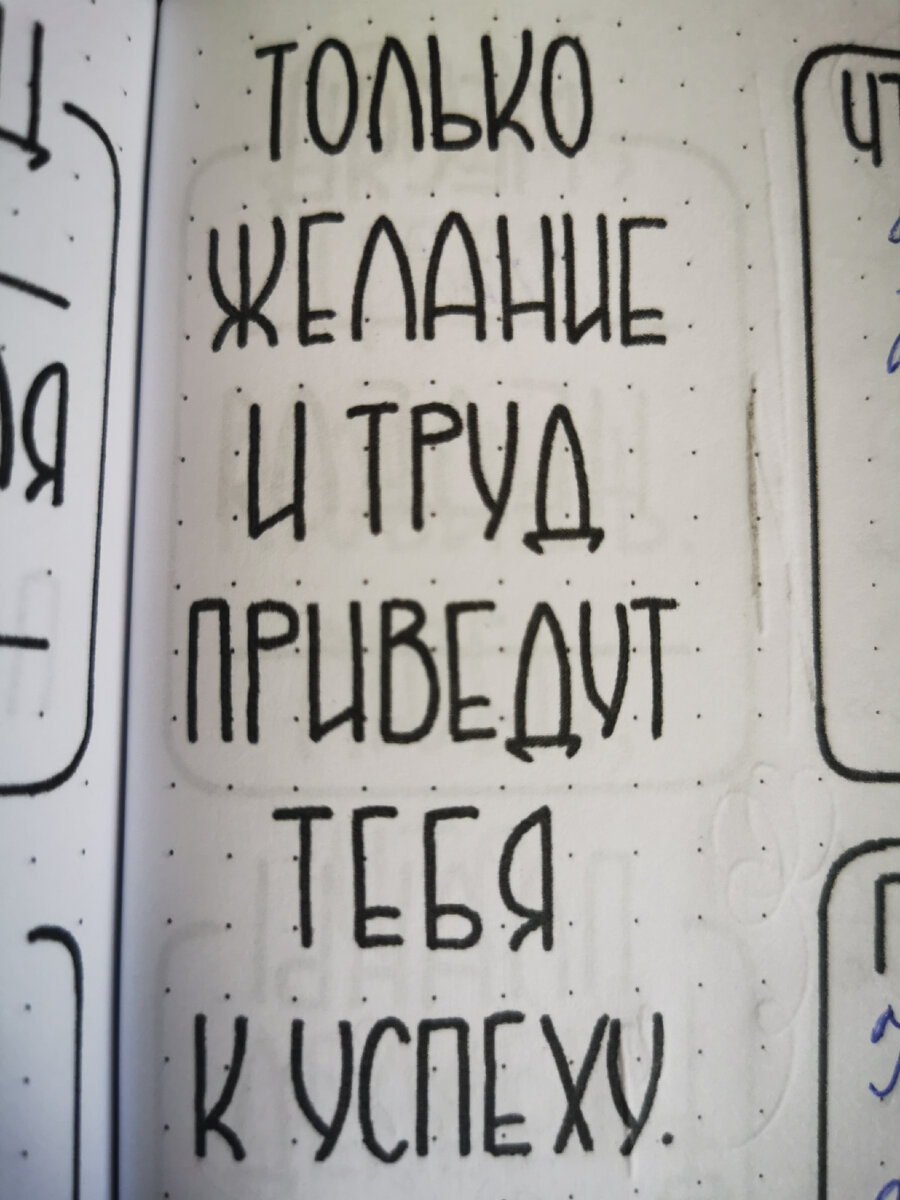 ТОЛЬКО
ЖЕЛАНИЕ
И ТРУД
ПРИВЕДУТ
ТЕБЯ
К УСПЕХУ.